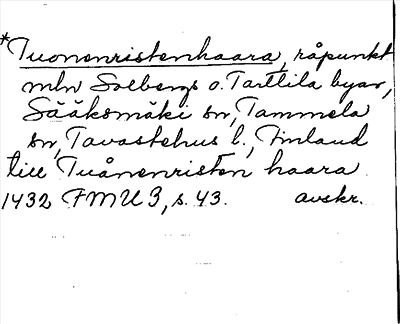 *Tuonenristenhaara, råpunkt
mln Solbergs o. Tarttila byar,
Sääksmäki sn, Tammela
sn, Tavastehus l., Finland
till Tuånenristen haara
1432 FMU 3, s. 43. avskr.